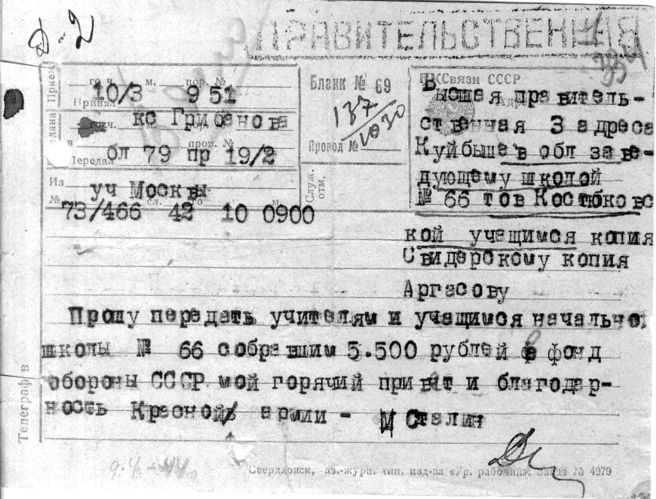 Д-2
ПРАВИТЕЛЬСТВЕННАЯ
го ч. м. пор. №
10/3 9 51
Принял
кс Грибанова
Передал
бл 79 пр 19/2
Из
уч Москвы
№ сл.
73/466 42 10 0900
Бланк № 69
137
1030
Провод №
Служ. отм.
НКСвязи СССР
Высшая правитель-
ственная 3 адреса
Куйбышев обл заве-
дующему школой
№ 66 тов Костюковс
кой учащимся копия
Свидерскому копия
Аргасову
Прошу передать учителям и учащимся начально
школы № 66 собравшим 5.500 рублей в фонд
обороны СССР мой горячий привт и благодар-
ность Красной армии - И Сталин
Телеграф в
9.4-44
Свердловск, аз.-журн. тип. изд-ва «Ур. рабочий». Заказ № 4979